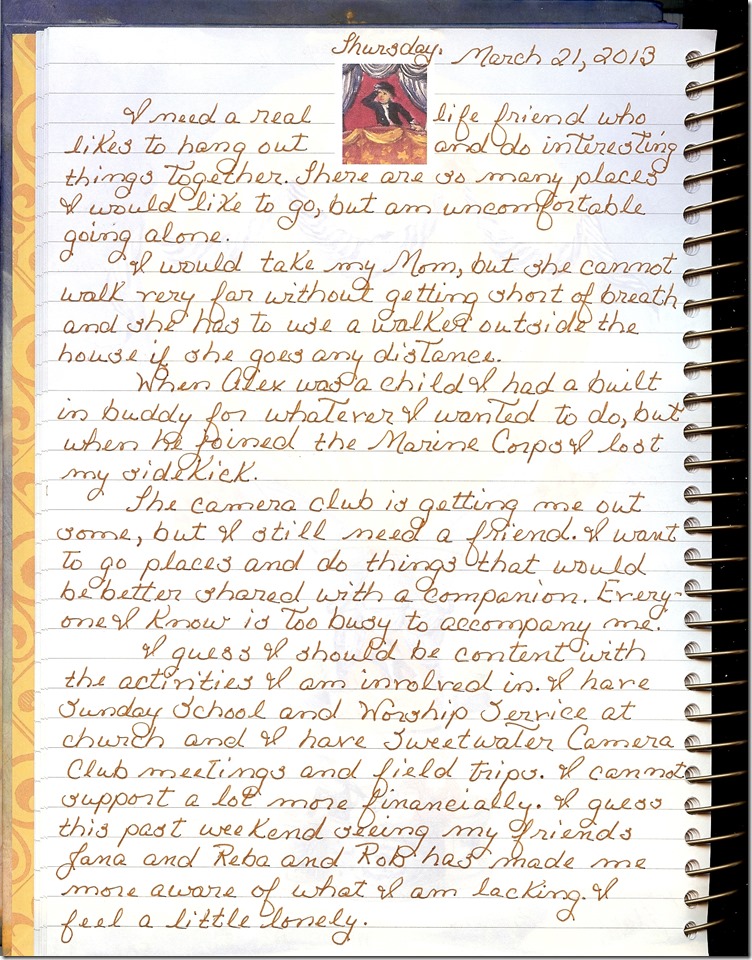 Thursday. March 21, 2013
I need a real life friend who
likes to hang out and do interesting
things together. There are so many places
I would like to go, but am uncomfortable
going alone.
I would take my Mom, but she cannot
walk very far without getting short of breath
and she has to use a walker outside the
house if she goes any distance.
When Alex was a child I had a built
in buddy for whatever I wanted to do, but
when he joined the Marine Corps I lost
my sidekick.
The camera club is getting me out
some, but I still need a friend. I want
to go places and do things that would
be better shared with a companion. Every-
one I know is too busy to accompany me.
I guess I should be content with
the activities I am involved in. I have
Sunday School and Worship Service at
church and I have Sweetwater Camera
Club meetings and field trips. I cannot
support a lot more financially. I guess
this past weekend seeing my friends
Jana and Reba and Rob has made me
more aware of what I am lacking. I
feel a little lonely.